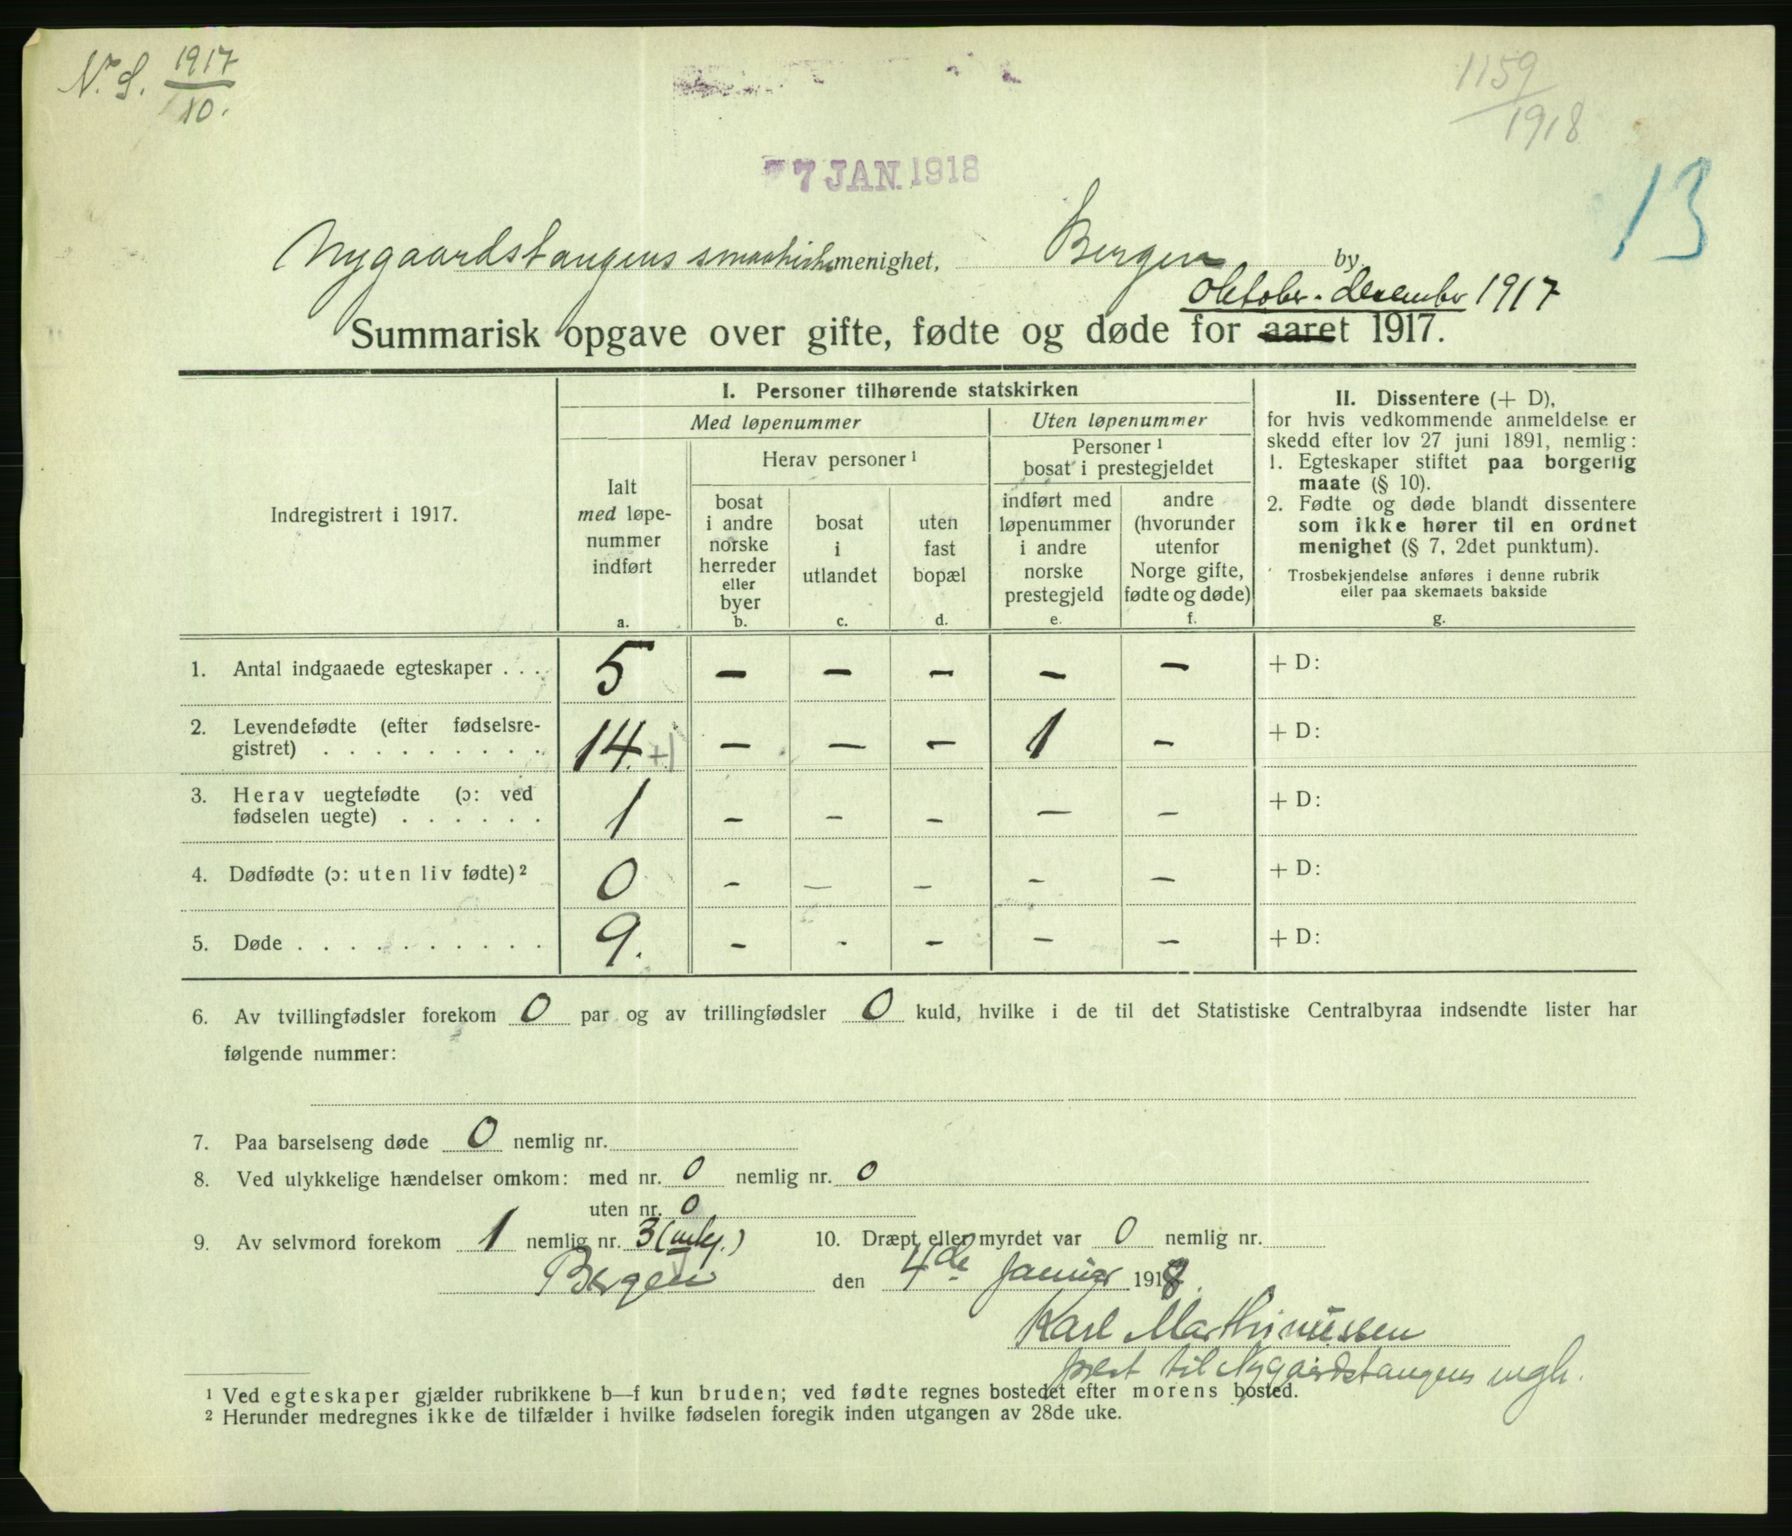 N. S. 1917
10.
1159
1918
7 JAN. 1918
13
Nygaardstangens smaakirke menighet, Bergen by.
Oktober-desember 1917
Summarisk opgave over gifte, fødte og døde for aaret 1917.
Indregistrert i 1917.
I. Personer tilhørende statskirken
Med løpenummer
Uten løpenummer
Ialt
med løpe-
nummer
indført
a.
Herav personer ¹
bosat
i andre
norske
herreder
eller
byer
b.
bosat
i
utlandet
c.
uten
fast
bopæl
d.
Personer ¹
bosat i prestegjeldet
indført med
løpenummer
i andre
norske
prestegjeld
e.
andre
(hvorunder
utenfor
Norge gifte,
fødte og døde)
f.
II. Dissentere (+ D),
for hvis vedkommende anmeldelse er
skedd efter lov 27 juni 1891, nemlig:
1. Egteskaper stiftet paa borgerlig
maate (§ 10).
2. Fødte og døde blandt dissentere
som ikke hører til en ordnet
menighet (§ 7, 2det punktum).
Trosbekjendelse anføres i denne rubrik
eller paa skemaets bakside
g.
1. Antal indgaaede egteskaper . . . 5 – – – – – + D:
2. Levendefødte (efter fødselsre-
gistret) . . . . . . . . . 14 +1 – – – 1 – + D:
3. Herav uegtefødte (ɔ: ved
fødselen uegte) . . . . . . 1 – – – – – + D:
4. Dødfødte (ɔ: uten liv fødte) ² 0 – – – – – + D:
5. Døde . . . . . . . . . . 9. – – – – – + D:
6. Av tvillingfødsler forekom 0 par og av trillingfødsler 0 kuld, hvilke i de til det Statistiske Centralbyraa indsendte lister har
følgende nummer:
7. Paa barselseng døde 0 nemlig nr.
8. Ved ulykkelige hændelser omkom: med nr. 0 nemlig nr. 0
uten nr. 0
9. Av selvmord forekom 1 nemlig nr. 3 10. Dræpt eller myrdet var 0 nemlig nr.
Bergen den 4de Januar 1918.
Karl Marthinussen
prest til Nygaardstangens mgh.
¹ Ved egteskaper gjælder rubrikkene b—f kun bruden; ved fødte regnes bostedet efter morens bosted.
² Herunder medregnes ikke de tilfælder i hvilke fødselen foregik inden utgangen av 28de uke.